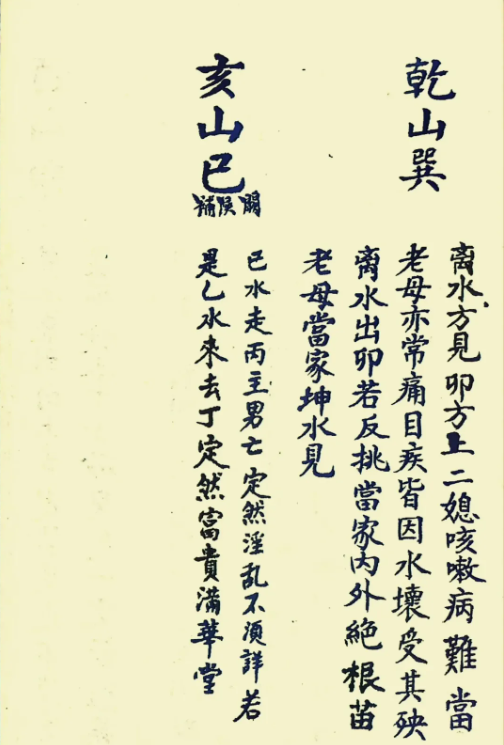 乾山巽
离水方見卯方上二媳咳嗽病難當
老母亦常痛目疾皆因水壞受其殃
离水出卯若反挑當家内外絕根苗
老母當家坤水見
亥山巳
巳水走丙主男亡定然淫乱不須詳若
是乙水來去丁定然富貴滿華堂